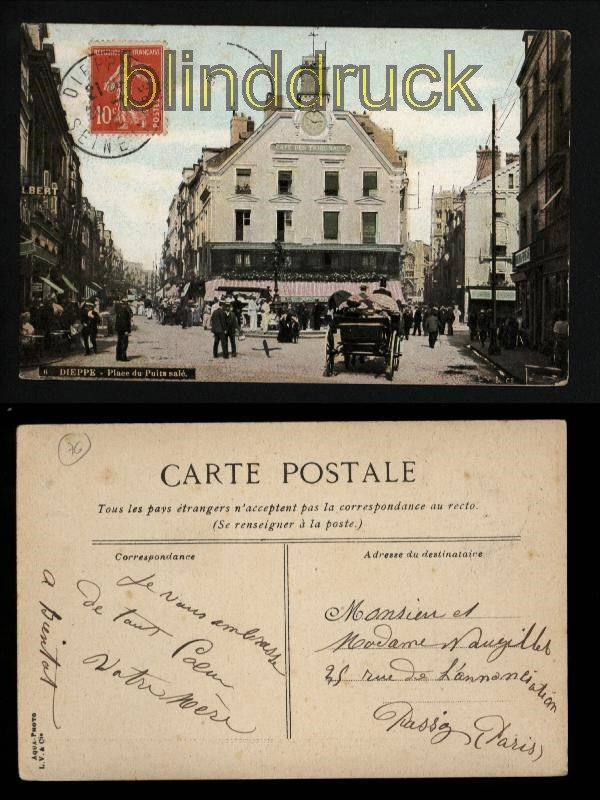 blinddruck
RÉPUBLIQUE FRANÇAISE
10c
POSTES
DIEPPE
SEINE
CAFÉ DES TRIBUNAUX
LBERT
6 DIEPPE - Place du Puits salé.
76
CARTE POSTALE
Tous les pays étrangers n'acceptent pas la correspondance au recto.
(Se renseigner à la poste.)
Correspondance
Adresse du destinataire
Je vous embrasse
de tout Coeur
Votre Mère
a Bientot
Monsieur et
Madame
25 rue de l'annonciation
Passy (Paris)
AQUA-PHOTO
L.V. & Cie